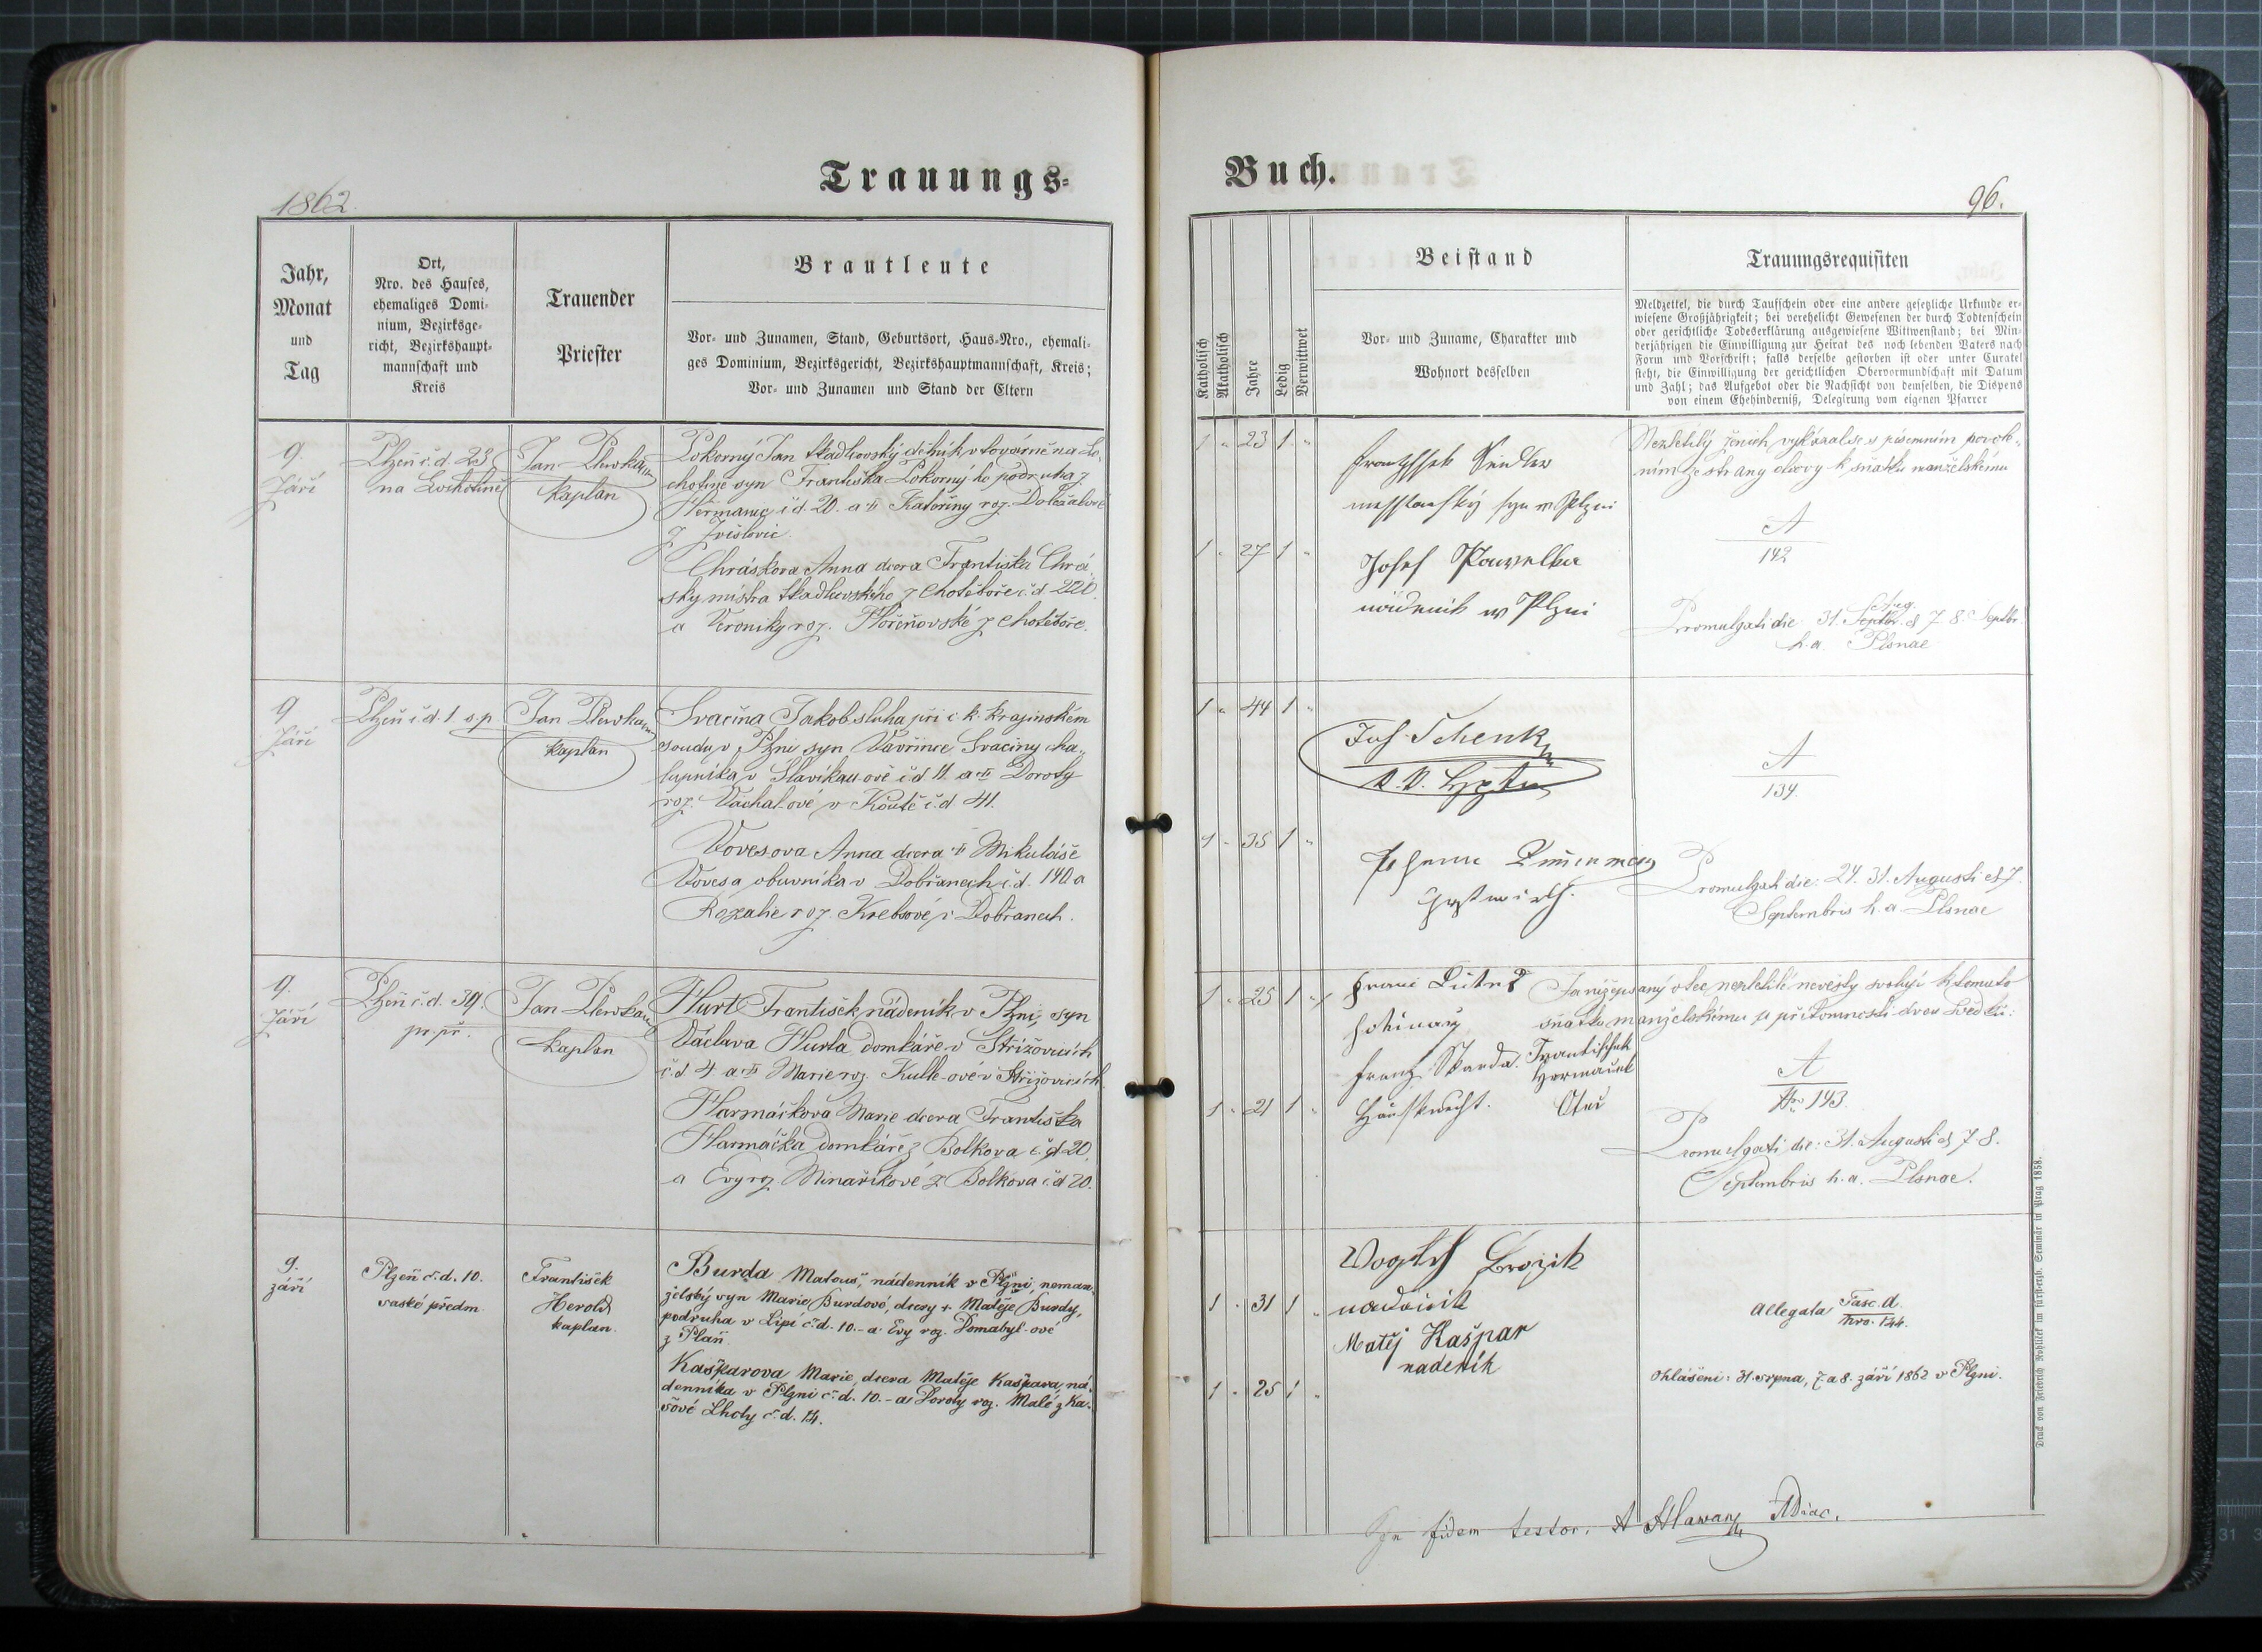 Trauungs-
Buch.
1862.
96.
Jahr,
Monat
und
Tag
Ort,
Nro. des Hauses,
ehemaliges Domi-
nium, Bezirksge-
richt, Bezirkshaupt-
mannschaft und
Kreis
Trauender
Priester
Brautleute
Vor- und Zunamen, Stand, Geburtsort, Haus-Nro., ehemali-
ges Dominium, Bezirksgericht, Bezirkshauptmannschaft, Kreis;
Vor- und Zunamen und Stand der Eltern
Katholisch
Akatholisch
Jahre
Ledig
Verwittwet
Beistand
Vor- und Zuname, Charakter und
Wohnort desselben
Trauungsrequisiten
Meldzettel, die durch Taufschein oder eine andere gesetzliche Urkunde er-
wiesene Großjährigkeit; bei verehelicht Gewesenen der durch Todtenschein
oder gerichtliche Todeserklärung ausgewiesene Wittwenstand; bei Min-
derjährigen die Einwilligung zur Heirat des noch lebenden Vaters nach
Form und Vorschrift; falls derselbe gestorben ist oder unter Curatel
steht, die Einwilligung der gerichtlichen Obervormundschaft mit Datum
und Zahl; das Aufgebot oder die Nachsicht von demselben, die Dispens
von einem Ehehinderniß, Delegirung vom eigenen Pfarrer
9.
Září
Plzeň č.d. 23
na Lochotíně
Jan
kaplan
Pokorný Jan tkadlcovský dělník v továrně na Lo-
chotíně syn Františka Pokorný ho podruha z
Heřmanic č d. 20. a Kateřiny roz. Doležalové
z
Chráskova Anna dcera Františka Chrá-
sky mistra tkadlcovského z Chotěboře č.d. 220.
a Veroniky roz. z Chotěboře.
1 " 23 1 "
1 " 27 1 "
Josef Pawelka
nádeník w Plzni
Nezletilý ženich vykázal se s písemním povole-
ním ze strany otcovy k sňatku manželskému
A
142
Aug.
Promulgati die 31. Septbr. & 7. 8. Septbr.
h. a. Plsnae
9
Září
Plzeň č d. 1 s. p.
Jan
kaplan
Svačina Jakob sluha při c. k. krajinském
soudu v Plzni syn Vavřince Svačiny cha-
lupníka v č d 11. a Doroty
roz. Váchal. ové v Koutě č.d 41.
Vovesova Anna dcera Mikuláše
Vovesa obuvníka v Dobřanech č.d. 140 a
Rozalie roz. Krebsové z Dobřanech.
1 " 44 1 "
1 " 35 1 "
Jos. Schenk
A
139.
Promulgati die: 24. 31. Augusti et 7.
Septembris h. a. Plsnae
9.
Září
Plzeň č.d. 39.
pr. př.
Jan
kaplan
Hurt František, nádeník v Plzni, syn
Václava Hurta, domkáře v Střížovicích
č.d 4 a Marie roz. v Střížovicích
Harmáčkova Marie dcera Františka
Harmáčka domkáře z Bolkova č. d 20.
a Evy roz. Minaříkové z Bolkova č.d 20.
1 " 25 1 "
1 " 21 1 "
Franz Skarda
Hausknecht.
Otec
Já nížepsaný otec nezletilé nevěsty svoluji k tomuto
sňatku manželskému u přítomnosti dvou svědků:
A
Nro 143
Promulgati die: 31. Augusti & 7. 8.
Septembris h. a. Plsnae.
9.
září
Plzeň č.d. 10.
saské předm
František
Herold
kaplan.
Burda Matouš, nádenník v Plzni, neman-
želský syn Marie Burdové, dcery + Matěje Burdy,
podruha v Lipí č.d. 10. – a Evy roz. Domabyl-ové
z Plaň.
Kašparova Marie, dcera Matěje Kašpara, ná-
denníka v Plzni č.d. 10. – a Doroty roz. Malé z Ka-
sové Lhoty č.d. 14.
1 " 31 1 "
1 " 25 1 "
Brozik
Matěj Kašpar
nadeník
Allegata Fasc. A.
Nro. 144.
Ohlášeni: 31. srpna, 7. a 8. září 1862 v Plzni.
fidem testor.
Druck von Friedrich Rohliček im fürsterzb. Seminär in Prag 1858.